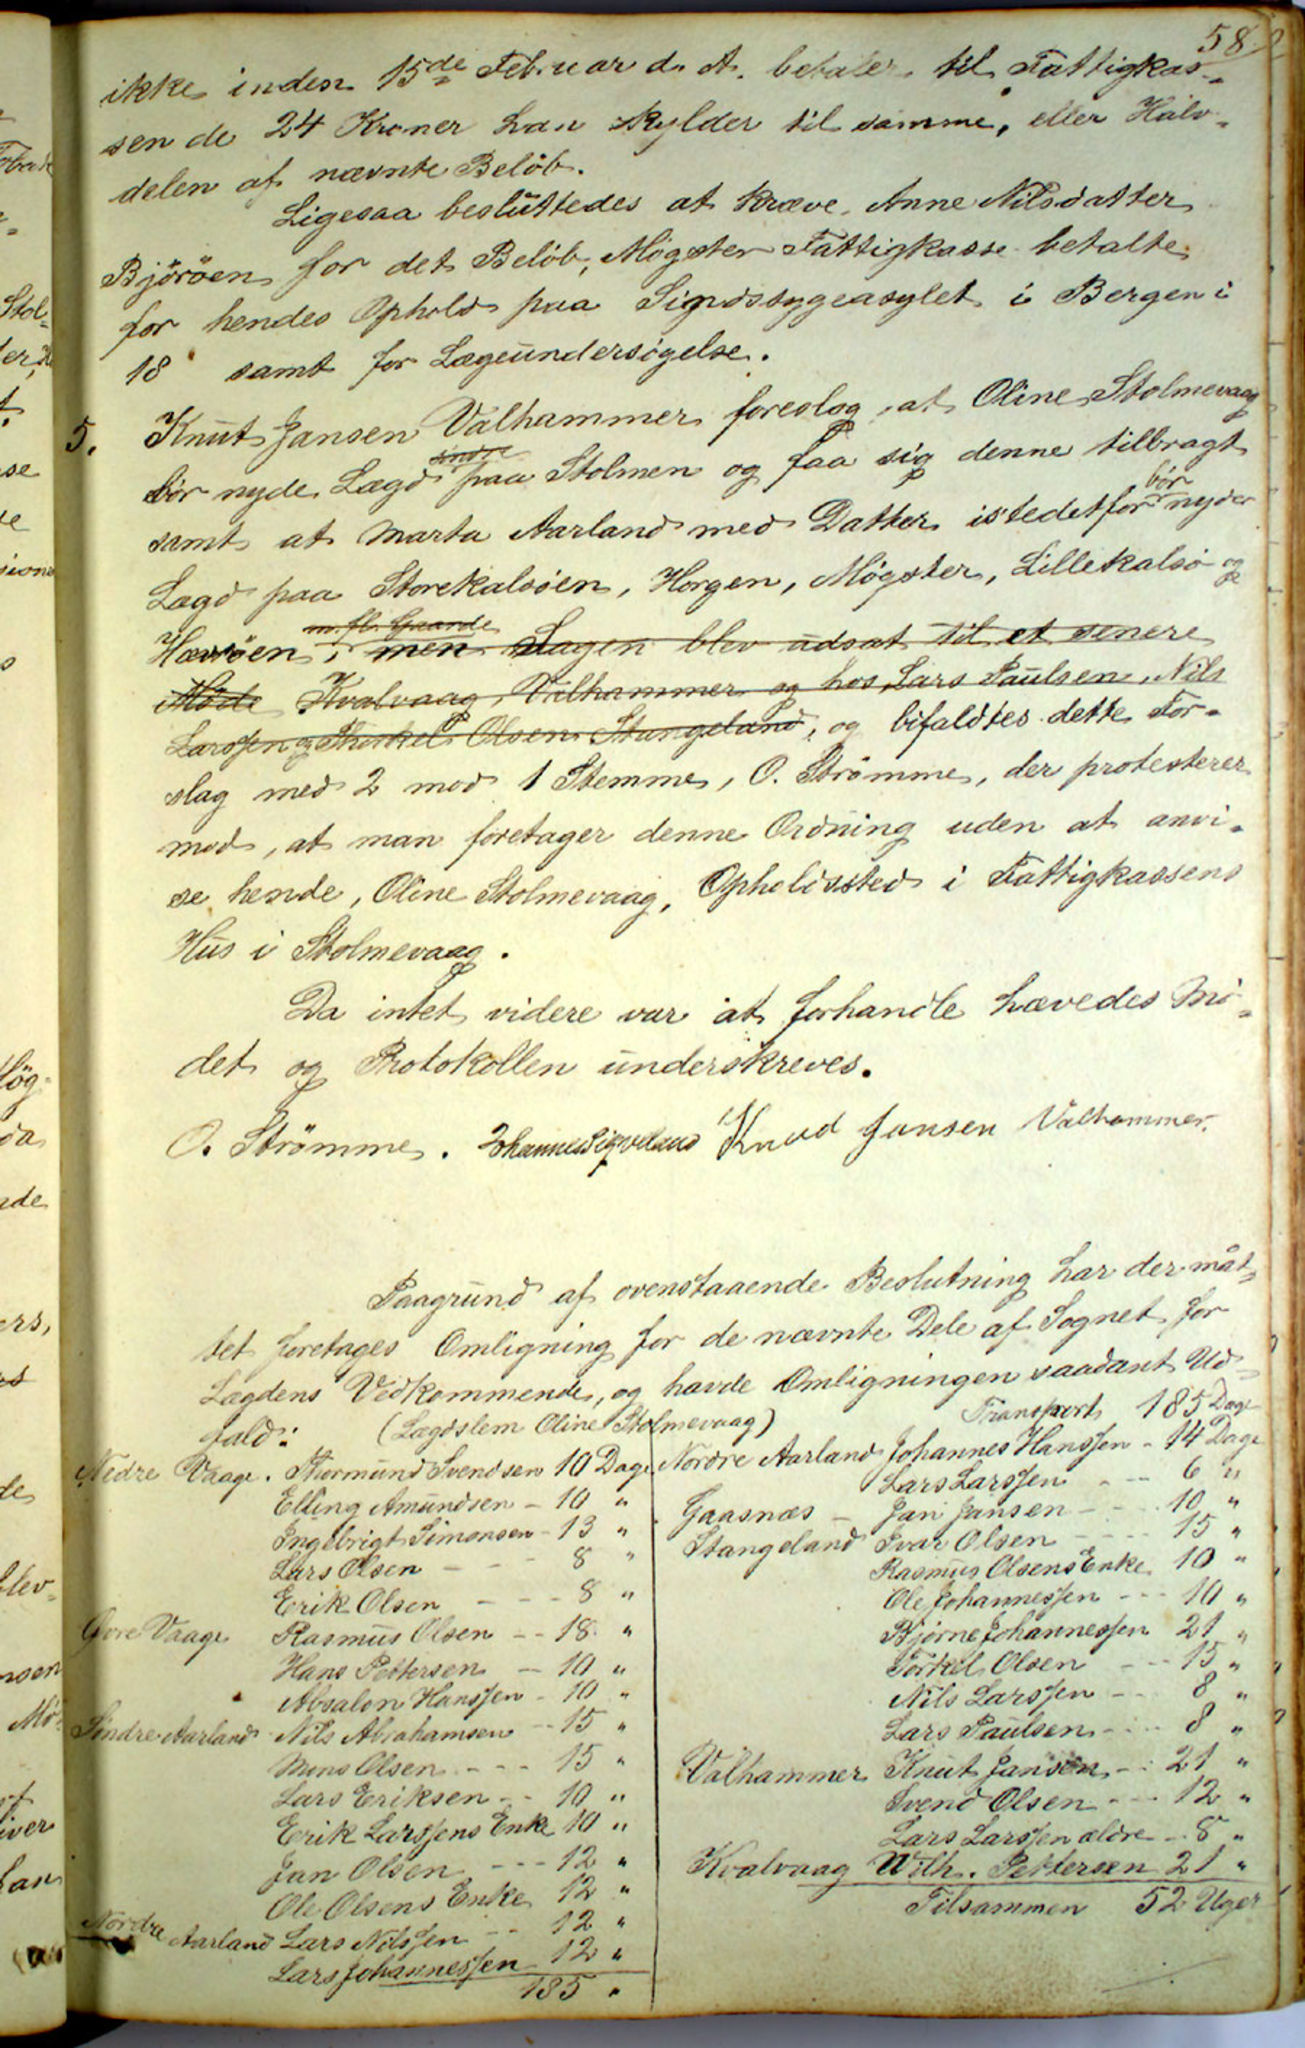 58
ikke inden 15de Februar d. A. betaler til Fattigkas-
sen de 24 Kroner han skylder til samme, eller Halv-
delen af nævnte Beløb.
Ligesaa besluttedes at kræve Anne Nilsdatter
Björöen for det Beløb, Møgster Fattigkasse betalte
for hendes Ophold paa Sindssygeasylet i Bergen i
18 samt for Lægeundersøgelse.
5. Knut Jansen Valhammer foreslog, at Oline Stolmevaag
bør nyde Lægd søndre paa Stolmen og faa sig denne tilbragt
samt at Marta Aarland med Datter istedetfor bør nyder
Lægd paa Storekalsöen, Horgen, Møgster, Lillekalsö og
m. fl. Gaarde
Hævröen, men Sagen blev udsat til et senere
Møde Kvalvaag, Valhammer og hos Lars Paulsen, Nils
Larssen og Thorkel Olsen Stangeland, og bifaldtes dette For-
slag med 2 mod 1 Stemme, O. Strömme, der protesterer
mod, at man foretager denne Ordning uden at anvi-
se hende, Oline Stolmevaag, Opholdssted i Fattigkassens
Hus i Stolmevaag.
Da intet videre var at forhandle hævedes Mö-
det og Protokollen underskreves.
O. Strömme. Johannes Sigveland Knud Jansen Valhammer.
Paagrund af ovenstaaende Beslutning har der måt-
tet foretages Omligning for de nævnte Dele af Sognet for
Lægdens Vedkommende, og havde Omligningen saadant Ud-
fald: (Lægdslem Oline Stolmevaag)
Nedre Vaage. Thormund Svendsen 10 Dage
Elling Amundsen - 10 "
Ingebrigt Simonsen - 13 "
Lars Olsen - - 8 "
Erik Olsen - - - 8 "
Øvre Vaage Rasmus Olsen - - 18 "
Hans Pettersen - 10 "
Absalon Hanssen - 10 "
Søndre Aarland Nils Abrahamsen - 15 "
Mons Olsen - - - 15 "
Lars Eriksen - - 10 "
Erik Larssens Enke 10 "
Jan Olsen - - - 12 "
Ole Olsens Enke 12 "
Nordre Aarland Lars Nilssen - - 12 "
Lars Johannessen 12 "
185 "
Transport 185 Dage
Nordre Aarland Johannes Hanssen - 14 Dage
Lars Larssen - - 6 "
Gaasnæs - Jan Jansen - - 10 "
Stangeland Ivar Olsen - - - 15 "
Rasmus Olsens Enke 10 "
Ole Johannessen - - - 10 "
Bjørne Johannessen 21 "
Torkel Olsen - - - 15 "
Nils Larssen - - 8 "
Lars Paulsen - - - 8 "
Valhammer Knut Jansen - - 21 "
Svend Olsen - - - 12 "
Lars Larssen ældre - 8 "
Kvalvaag Wilh. Pettersen 21 "
Tilsammen 52 Uger